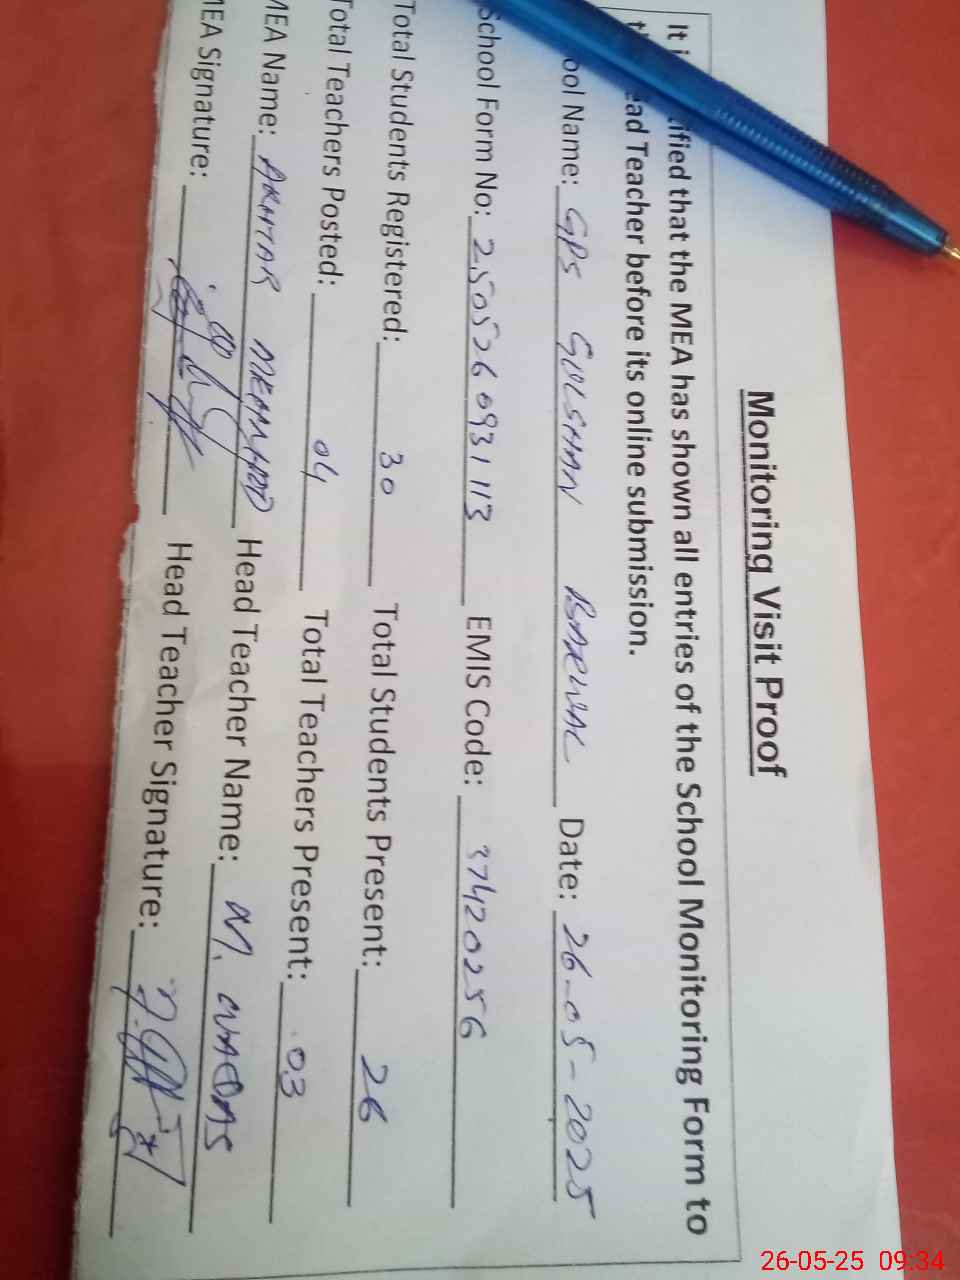 Monitoring Visit Proof
It is certified that the MEA has shown all entries of the School Monitoring Form to
the Head Teacher before its online submission.
ool Name: GPS GULSHAN Date: 26-05-2025
School Form No: 250526093113 EMIS Code: 37420256
Total Students Registered: 30 Total Students Present: 26
Total Teachers Posted: 04 Total Teachers Present: 03
MEA Name: AKHTAR MEAHMOOD Head Teacher Name: M.
MEA Signature: Head Teacher Signature:
26-05-25 09:34